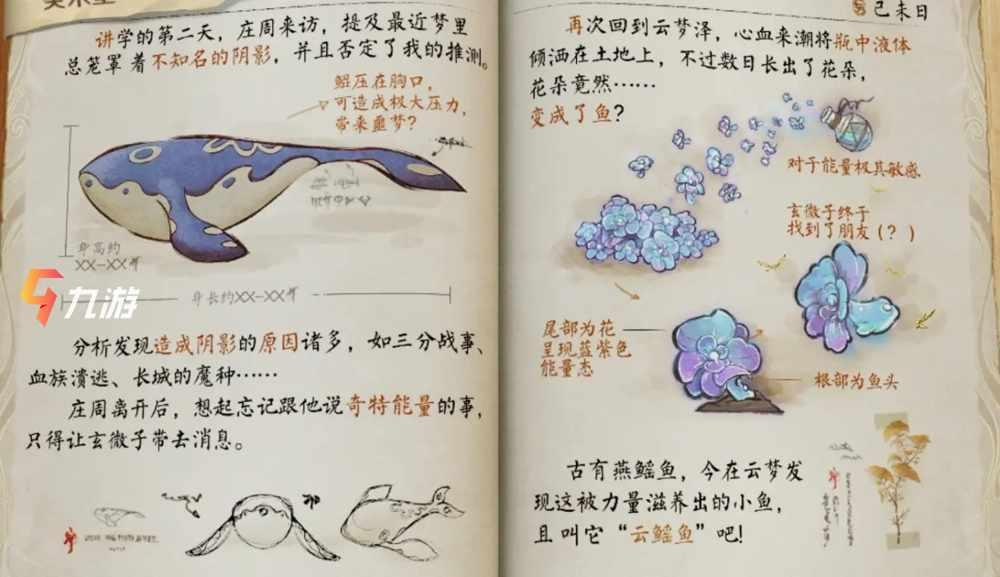 讲学的第二天，庄周来访，提及最近梦里
总笼罩着不知名的阴影，并且否定了我的推测。
鲲压在胸口，
可造成极大压力，
带来噩梦？
身高约
XX-XX尺
身长约XX-XX尺
九游
分析发现造成阴影的原因诸多，如三分战事、
血族溃逃、长城的魔种……
庄周离开后，想起忘记跟他说奇特能量的事，
只得让玄微子带去消息。
己未日
再次回到云梦泽，心血来潮将瓶中液体
倾洒在土地上，不过数日长出了花朵，
花朵竟然……
变成了鱼？
对于能量极其敏感
玄微子终于
找到了朋友（？）
尾部为花
呈现蓝紫色
能量态
根部为鱼头
古有燕鳐鱼，今在云梦发
现这被力量滋养出的小鱼，
且叫它“云鳐鱼”吧！